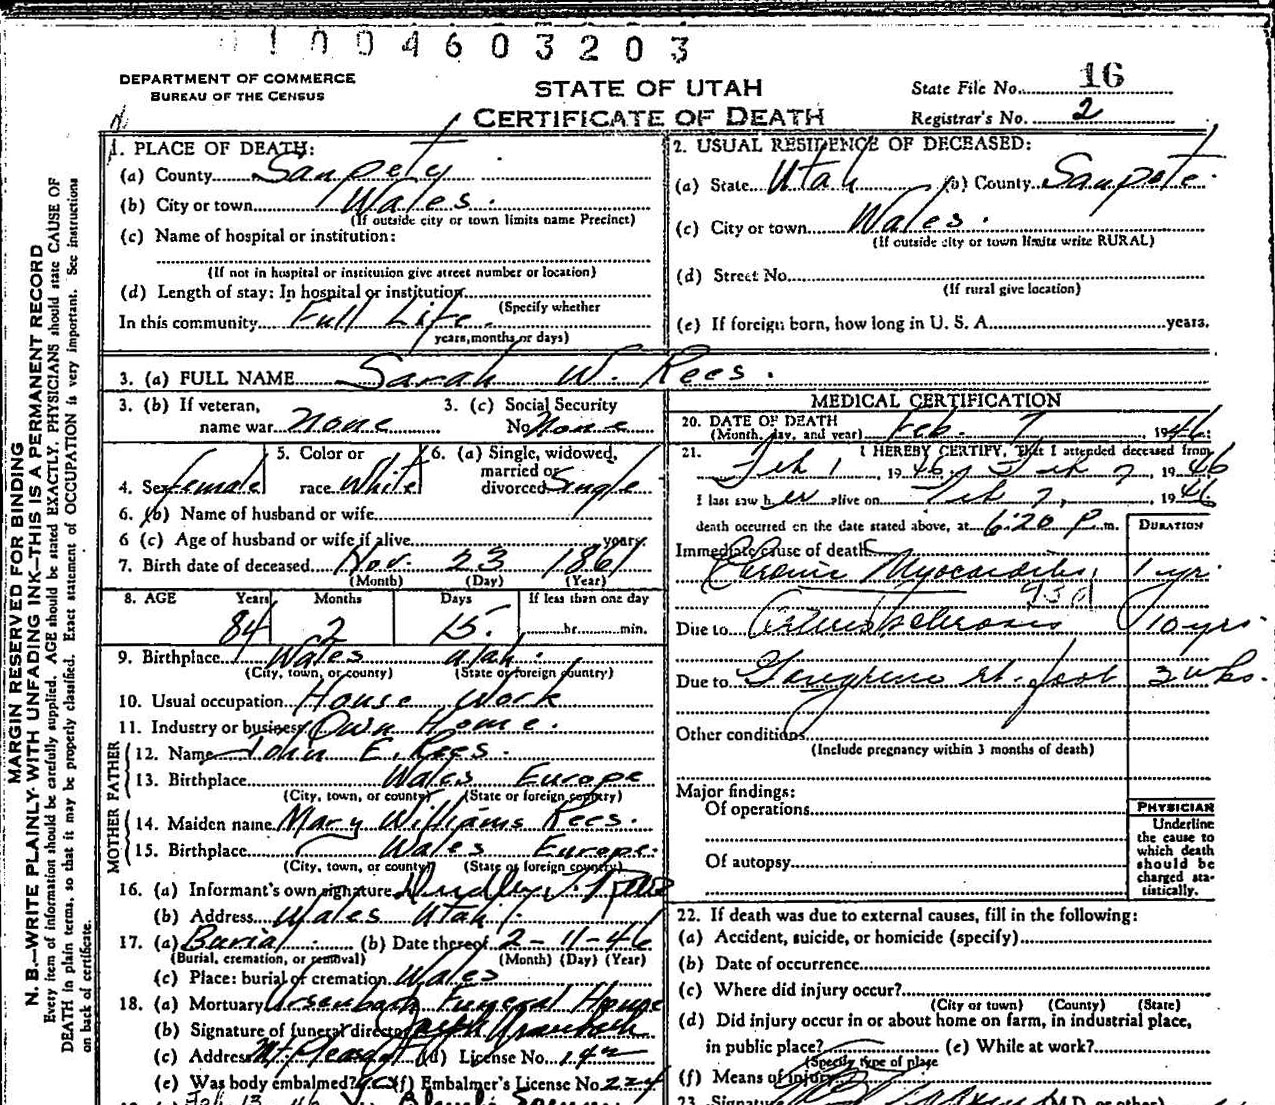 1004603203
DEPARTMENT OF COMMERCE
BUREAU OF THE CENSUS
STATE OF UTAH
CERTIFICATE OF DEATH
State File No. 16
Registrar's No. 2
MARGIN RESERVED FOR BINDING
N. B.—WRITE PLAINLY WITH UNFADING INK—THIS IS A PERMANENT RECORD
Every item of information should be carefully supplied. AGE should be stated EXACTLY. PHYSICIANS should state CAUSE OF
DEATH in plain terms, so that it may be properly classified. Exact statement of OCCUPATION is very important. See instructions
on back of certificate.
1. PLACE OF DEATH:
(a) County Sanpety
(b) City or town Wales.
(If outside city or town limits name Precinct)
(c) Name of hospital or institution:
(If not in hospital or institution give street number or location)
(d) Length of stay: In hospital or institution
(Specify whether
In this community Full Life.
years, months, or days)
2. USUAL RESIDENCE OF DECEASED:
(a) State Utah (b) County Sanpete.
(c) City or town Wales.
(If outside city or town limits write RURAL)
(d) Street No.
(If rural give location)
(e) If foreign born, how long in U. S. A. years.
3. (a) FULL NAME Sarah W. Rees.
3. (b) If veteran, name war none
3. (c) Social Security No. None
4. Sex female
5. Color or race White
6. (a) Single, widowed, married or divorced Single
6. (b) Name of husband or wife
6 (c) Age of husband or wife if alive years
7. Birth date of deceased Nov. 23 1861
(Month) (Day) (Year)
8. AGE Years Months Days If less than one day
84 2 15. hr. min.
9. Birthplace Wales Utah.
(City, town, or county) (State or foreign country)
10. Usual occupation House Work
11. Industry or business Own Home.
FATHER
12. Name John E. Rees.
13. Birthplace Wales Europe
(City, town, or county) (State or foreign country)
MOTHER
14. Maiden name Mary Williams Rees.
15. Birthplace Wales Europe.
(City, town, or county) (State or foreign country)
16. (a) Informant's own signature Dudley J. Rees
(b) Address Wales Utah.
17. (a) Burial (b) Date thereof 2-11-46
(Burial, cremation, or removal) (Month) (Day) (Year)
(c) Place: burial or cremation Wales
18. (a) Mortuary Ursenbach Funeral Home
(b) Signature of funeral director Ursenbach
(c) Address Mt. Pleasant (d) License No. 142
(e) Was body embalmed? yes (f) Embalmer's License No. 224
MEDICAL CERTIFICATION
20. DATE OF DEATH
(Month, day, and year) Feb. 7, 1946.
21. I HEREBY CERTIFY, That I attended deceased from
Feb 1, 1946, Feb 7, 1946
I last saw her alive on Feb 7, 1946
death occurred on the date stated above, at 6:20 P. m.
DURATION
Immediate cause of death
Chronic Myocarditis, 1 yr.
93d
Due to Arteriosclerosis 10 yrs.
Due to Gangrene rt. foot 3 wks.
Other conditions
(Include pregnancy within 3 months of death)
Major findings:
Of operations
Of autopsy
PHYSICIAN
Underline
the cause to
which death
should be
charged sta-
tistically.
22. If death was due to external causes, fill in the following:
(a) Accident, suicide, or homicide (specify)
(b) Date of occurrence
(c) Where did injury occur?
(City or town) (County) (State)
(d) Did injury occur in or about home on farm, in industrial place,
in public place? (e) While at work?
(Specify type of place
(f) Means of injury
23. Signature (M.D. or other)